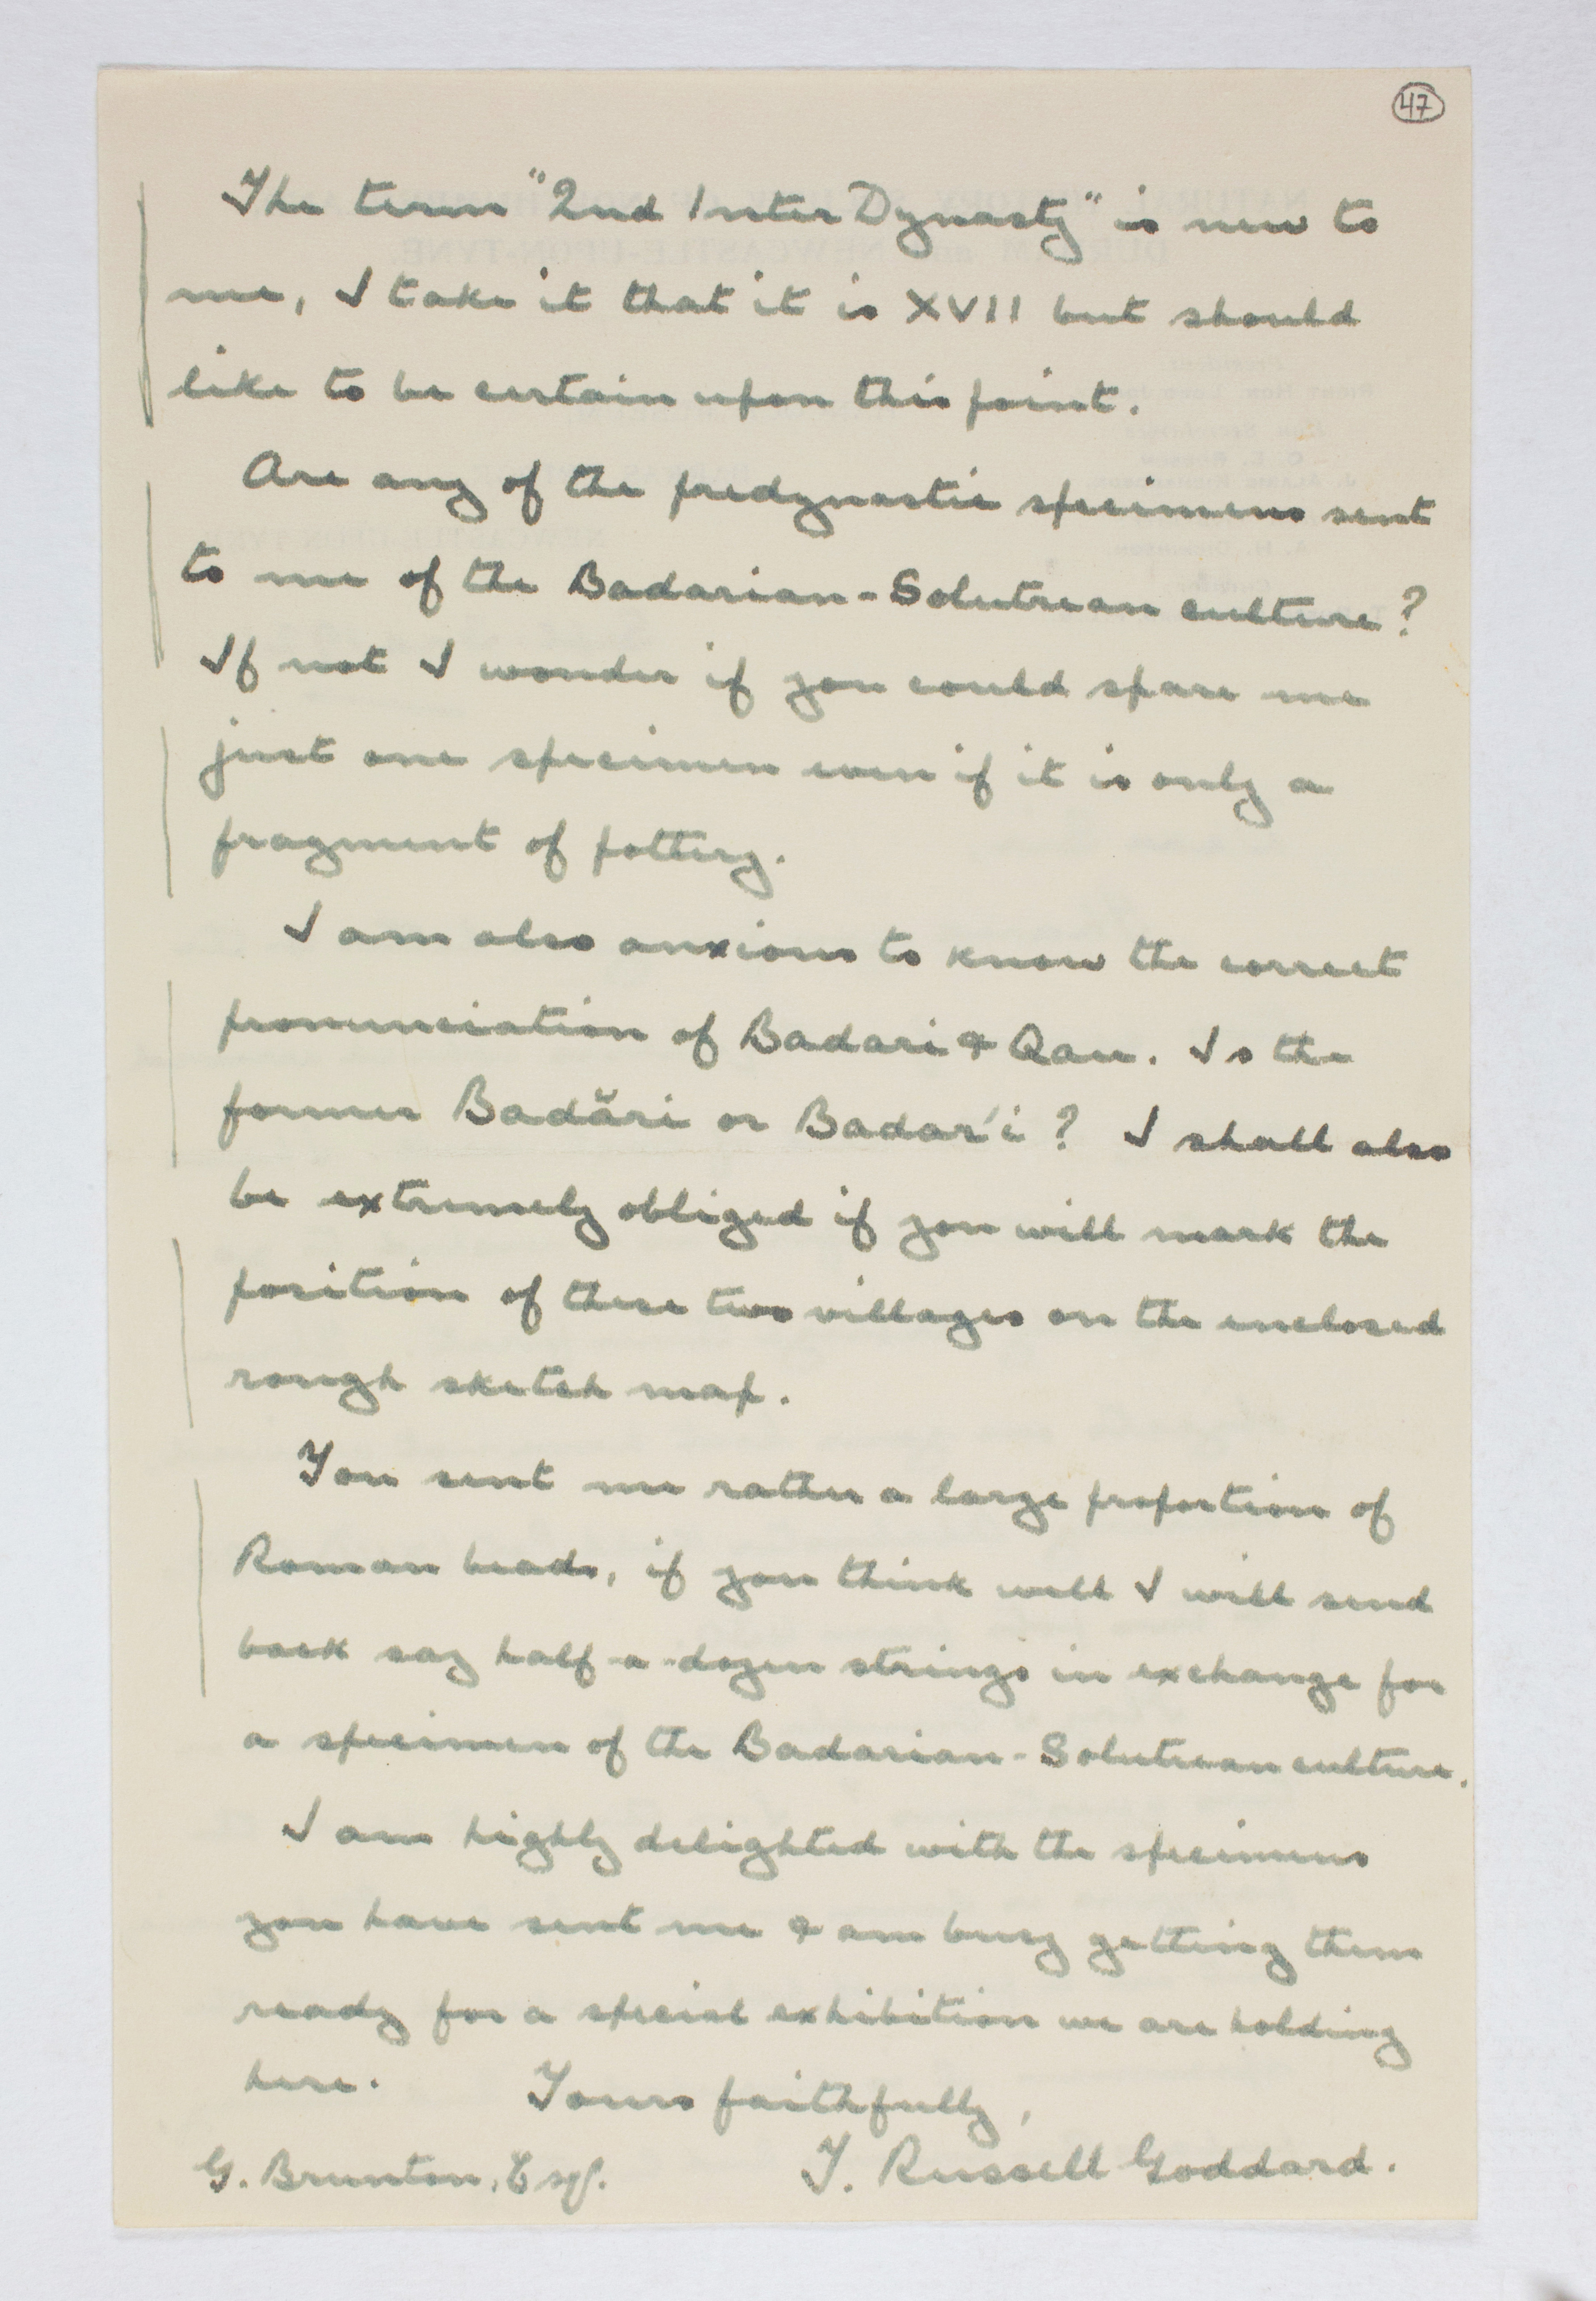 47
The term "2nd Inter Dynasty" is new to
me, I take it that it is XVII but should
like to be certain upon this point.
Are any of the predynastic specimens sent
to me of the Badarian-Solutrean culture?
If not I wonder if you could spare me
just one specimen even if it is only a
fragment of pottery.
I am also anxious to know the correct
pronunciation of Badari & Qau. Is the
former Badări or Badar'i? I shall also
be extremely obliged if you will mark the
position of these two villages on the enclosed
rough sketch map.
You sent me rather a large proportion of
Roman beads, if you think well I will send
back say half-a-dozen strings in exchange for
a specimen of the Badarian-Solutrean culture.
I am highly delighted with the specimens
you have sent me & am busy getting them
ready for a special exhibition we are holding
here. Yours faithfully,
G. Brunton, Esq. T. Russell Goddard.